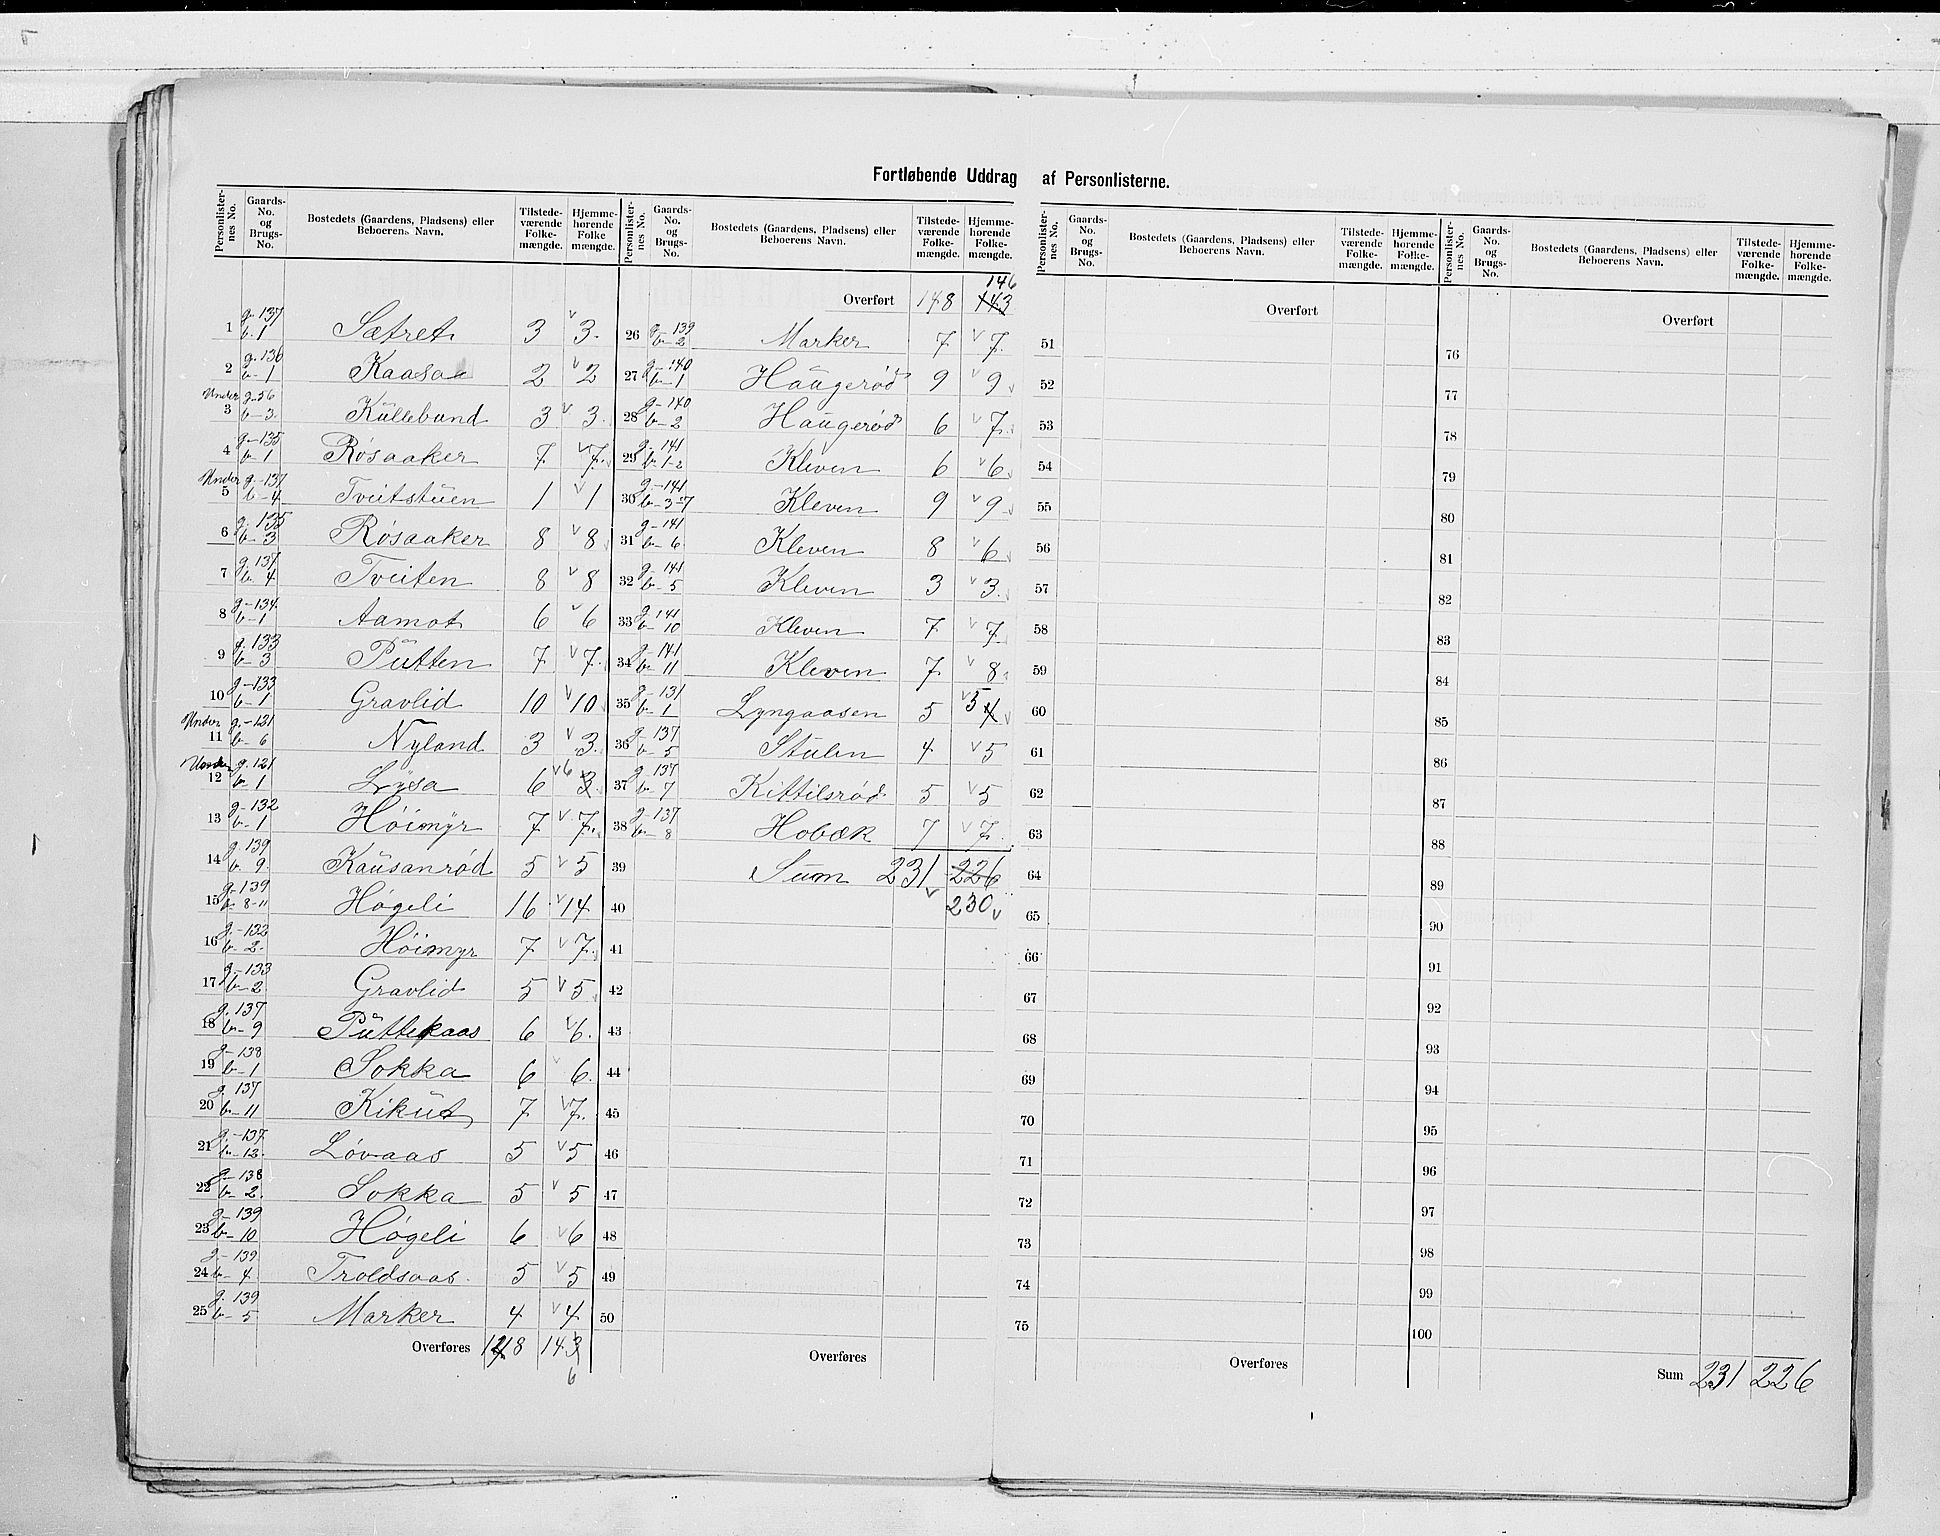 Fortløbende Uddrag af Personlisterne.
Personlister-nes No. Gaards-No. og Brugs-No. Bostedets (Gaardens, Pladsens) eller Beboerens Navn. Tilstede-værende Folke-mængde. Hjemme-hørende Folke mængde.
1 g. 137 b. 1 Sætret 3 v 3.
2 g. 136 b-1 Kaasaa 2 v 2
Under 3 g-56 b-3. Kullebund 3 v 3.
4 g-135 b-1 Røsaaker 7 v 7.
Under 5 g.-137 b-4 Tveitstuen 1 v 1
6 g. 135 b-3 Røsaaker 8 v 8
7 g. 137 b. 4 Tveiten 8 v 8
8 g-134. b-1 Aamot 6 v 6
9 g. 133 b-3 Putten 7 v 7.
10 g-133 b-1 Gravlid 10 v 10
Under 11 g.-121 b-6 Nyland 3 v 3.
Under 12 g. 121 b-1 Lysa 6 v 6 3.
13 g-132 b-1 Høimyr 7 v 7.
14 g. 139 b. 9. Kausanrød 5 v 5
15 g-139 b-8-11 Høgeli 16 v 14
16 g.-132 b-2. Høimyr 7 v 7.
17 g.-133 b-2 Gravlid 5 v 5
18 g. 137 b-9 Puttekaas 6 v 6.
19 g-138 b-1 Sokka 6 v 6.
20 g. 137 b-11 Kikut 7 v 7.
21 g.-137 b-12. Løvaas 5 v 5
22 g-138 b-2. Sokka 5 v 5
23 g-139 b-10 Høgeli 6 v 6
24 g.-139 b-4 Troldsaas. 5 v 5
25 g. 139 b-5 Marker 4 v 4
Overføres 148 143
6
Personlister-nes No. Gaards-No. og Brugs-No. Bostedets (Gaardens, Pladsens) eller Beboerens Navn. Tilstede-værende Folke-mængde. Hjemme-hørende Folke-mængde.
146
Overført 148 143
26 g-139 b-2 Marker 7 v 7.
27 g-140 b-1 Haugerød 9 v 9
28 g-140 b-2 Haugerød 6 v 7.
29 g.-141 b. 1-2 Kleven 6 v 6
30 g.-141 b-3-7 Kleven 9 v 9
31 g-141 b-6. Kleven 8 v 6
32 g-141 b-5 Kleven 3 v 3.
33 g. 141 b-10 Kleven 7 v 7
34 g-141 b-11 Kleven 7 v 8
35 g-131 b-1 Lyngaasen 5 v 5 4
36 g-137 b-5 Stulen 4 v 5
37 g-137 b-7 Kittilsrød 5 v 5
38 g-137 b-8 Hobæk 7 v 7.
39 Sum 231 226
40 v 230 v
41
42
43
44
45
46
47
48
49
50
Overføres
Personlister-nes No. Gaards-No. og Brugs-No. Bostedets (Gaardens, Pladsens) eller Beboerens Navn. Tilstede-værende Folke-mængde. Hjemme-hørende Folke-mængde.
Overført
51
52
53
54
55
56
57
58
59
60
61
62
63
64
65
66
67
68
69
70
71
72
73
74
75
Overføres
Personlister-nes No. Gaards-No. og Brugs-No. Bostedets (Gaardens, Pladsens) eller Beboerens Navn. Tilstede-værende Folke-mængde. Hjemme-hørende Folke-mængde.
Overført
76
77
78
79
80
81
82
83
84
85
86
87
88
89
90
91
92
93
94
95
96
97
98
99
100
Sum 231 226